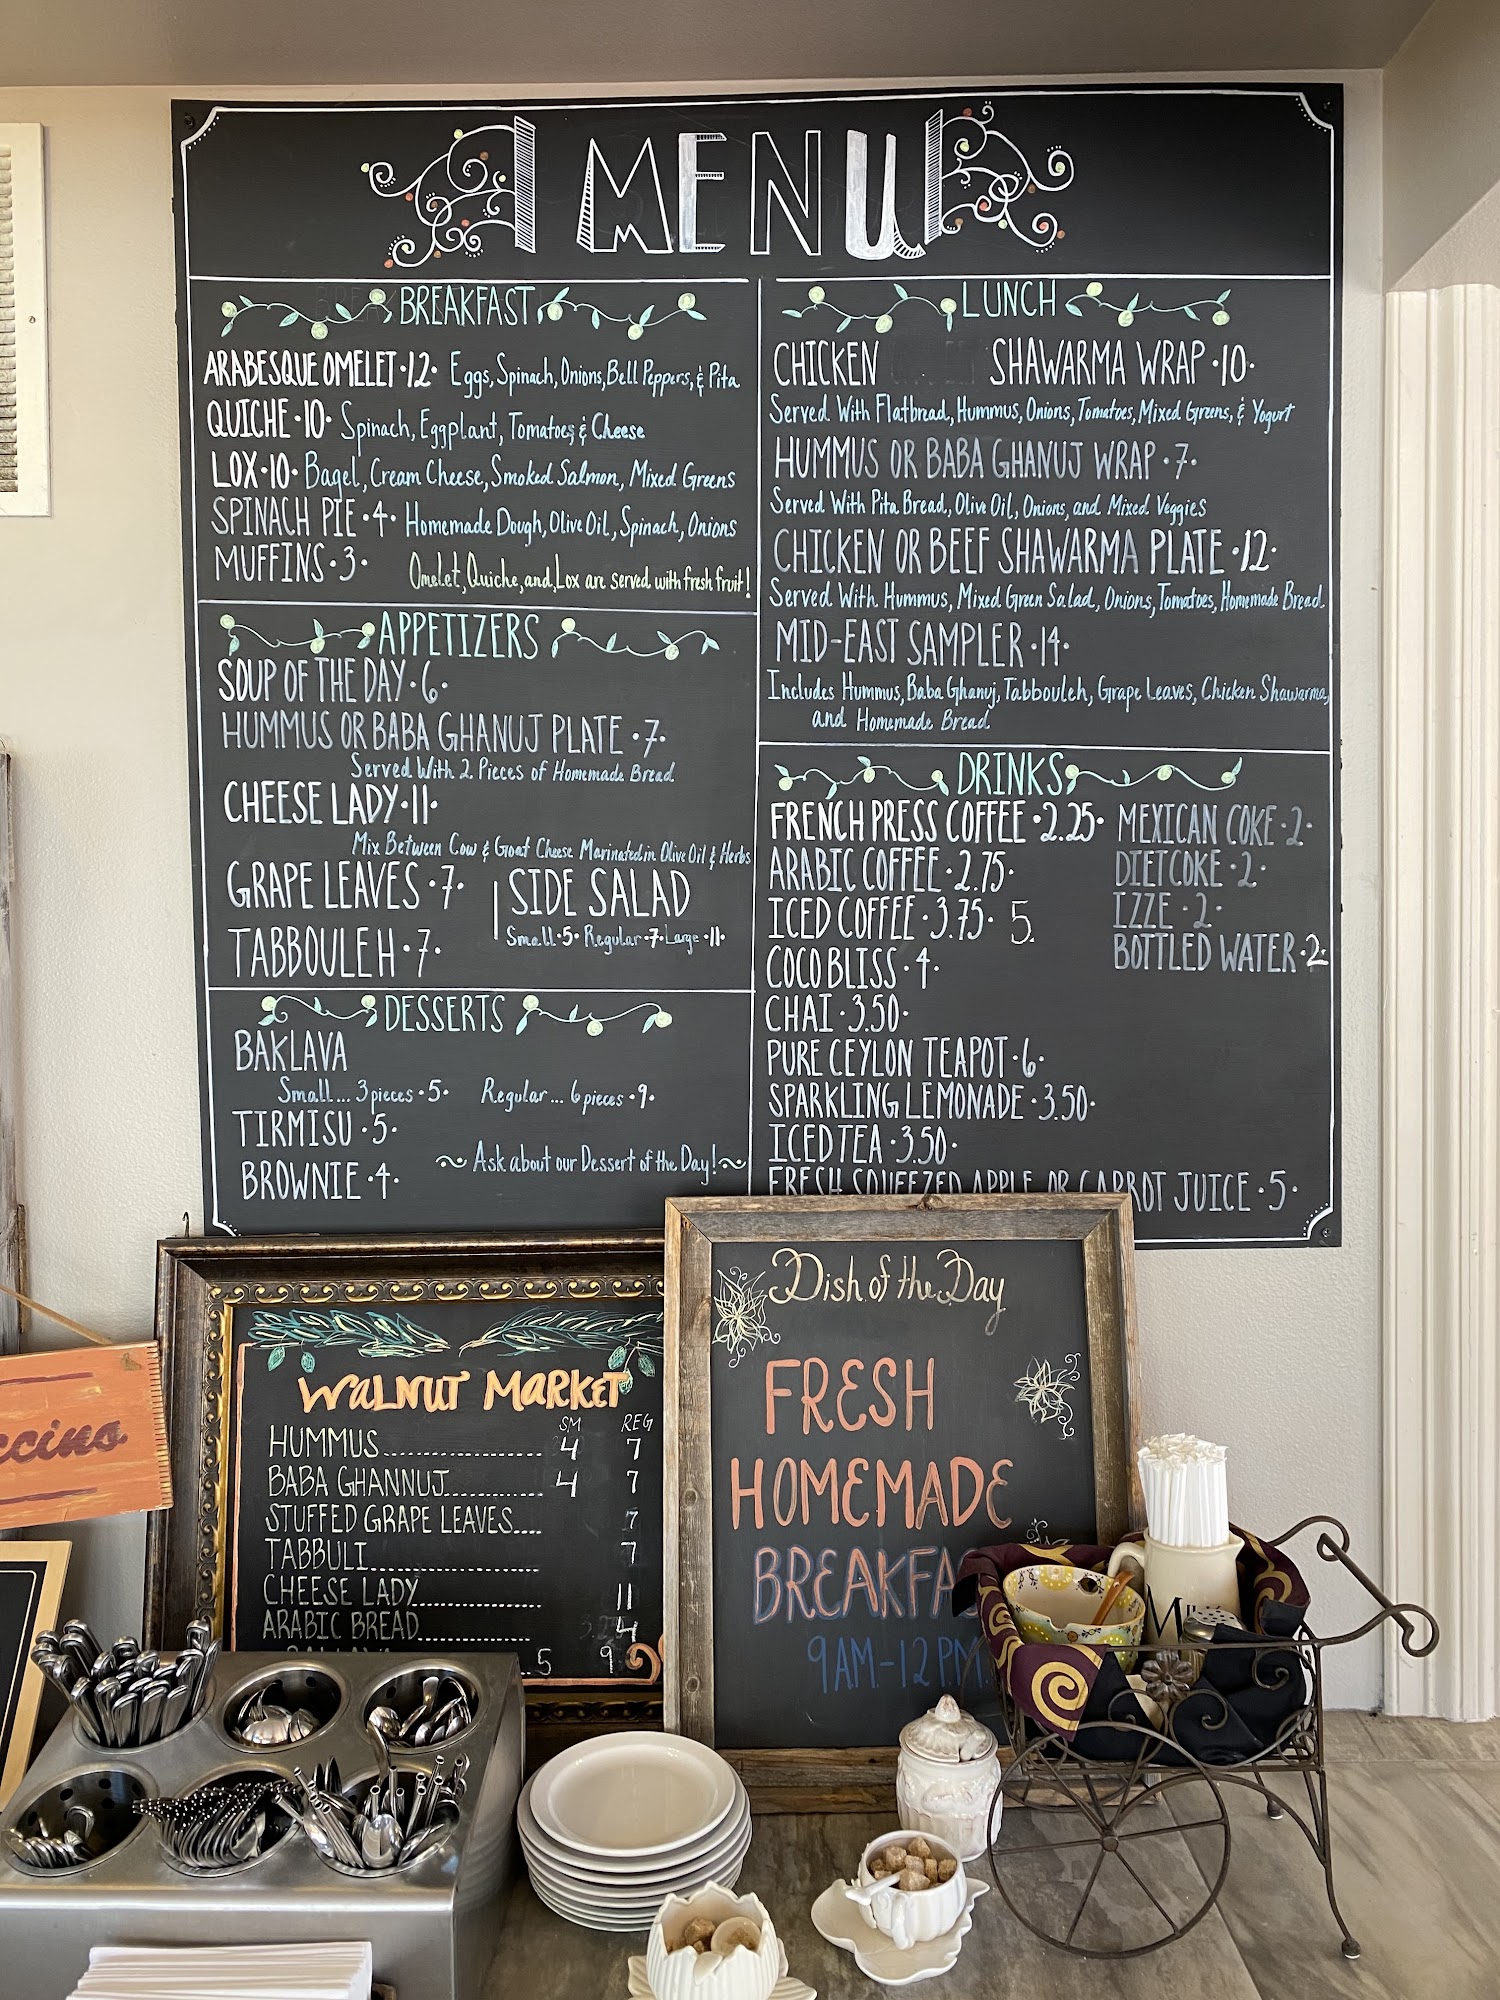 MENU
BREAKFAST
ARABESQUE OMELET •12• Eggs, Spinach, Onions, Bell Peppers, & Pita
QUICHE •10• Spinach, Eggplant, Tomatoes & Cheese
LOX •10• Bagel, Cream Cheese, Smoked Salmon, Mixed Greens
SPINACH PIE •4• Homemade Dough, Olive Oil, Spinach, Onions
MUFFINS •3•
Omelet, Quiche, and, Lox are served with fresh fruit!
APPETIZERS
SOUP OF THE DAY •6•
HUMMUS OR BABA GHANUJ PLATE •7•
Served With 2 Pieces of Homemade Bread
CHEESE LADY •11•
Mix Between Cow & Goat Cheese Marinated in Olive Oil & Herbs
GRAPE LEAVES •7•
TABBOULEH •7•
SIDE SALAD
Small •5• Regular •7• Large •11•
DESSERTS
BAKLAVA
Small... 3 pieces •5• Regular... 6 pieces •9•
TIRMISU •5•
BROWNIE •4•
~ Ask about our Dessert of the Day! ~
LUNCH
CHICKEN SHAWARMA WRAP •10•
Served With Flatbread, Hummus, Onions, Tomatoes, Mixed Greens, & Yogurt
HUMMUS OR BABA GHANUJ WRAP •7•
Served With Pita Bread, Olive Oil, Onions, and Mixed Veggies
CHICKEN OR BEEF SHAWARMA PLATE •12•
Served With Hummus, Mixed Green Salad, Onions, Tomatoes, Homemade Bread
MID-EAST SAMPLER •14•
Includes Hummus, Baba Ghanuj, Tabbouleh, Grape Leaves, Chicken Shawarma,
and Homemade Bread
DRINKS
FRENCH PRESS COFFEE •2.25•
ARABIC COFFEE •2.75•
ICED COFFEE •3.75• 5.
COCO BLISS •4•
CHAI •3.50•
PURE CEYLON TEAPOT •6•
SPARKLING LEMONADE •3.50•
ICED TEA •3.50•
FRESH SQUEEZED APPLE OR CARROT JUICE •5•
MEXICAN COKE •2•
DIET COKE •2•
IZZE •2•
BOTTLED WATER •2•
WALNUT MARKET
SM REG
HUMMUS 4 7
BABA GHANNUJ 4 7
STUFFED GRAPE LEAVES 7
TABBULI 7
CHEESE LADY 11
ARABIC BREAD 4
5 9
Dish of the Day
FRESH
HOMEMADE
BREAKFA
9AM-12PM
ccino